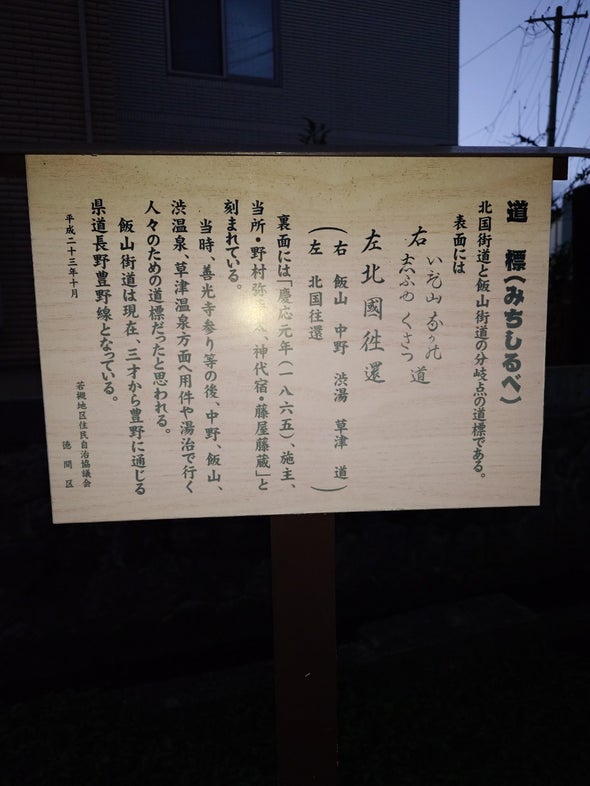 道　標(みちしるべ)
北国街道と飯山街道の分岐点の道標である。
表面には
右　いひ山　なかの　道
志ふゆ　くさつ
左北國徃還
(右　飯山　中野　渋湯　草津　道)
(左　北国往還)
裏面には「慶応元年(一八六五)、施主、
当所・野村弥　太、神代宿・藤屋藤蔵」と
刻まれている。
当時、善光寺参り等の後、中野、飯山、
渋温泉、草津温泉方面へ用件や湯治で行く
人々のための道標だったと思われる。
飯山街道は現在、三才から豊野に通じる
県道長野豊野線となっている。
平成二十三年十月
若槻地区住民自治協議会
徳間区